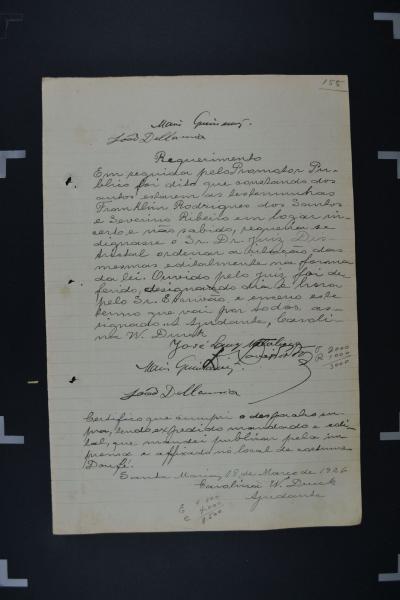 155
João Dellamea
Requerimento
Em seguida pelo Promotor Pu-
blico foi dito que constando dos
autos estarem as testemunhas
Franklin Rodrigues dos Santos
e Severino Ribeiro em logar in-
certo e não sabido, requeria se
dignasse o Sr. Dr. Juiz Dis-
trictal ordenar a citação das
mesmas editalmente na forma
da lei. Ouvido pelo juiz foi de-
ferido, designando dia e hora
pelo Sr. Escrivão, e encerro este
termo que vai por todos as-
signado. Ajudante, Caroli-
na W. Duck
José Luiz
E. 2000
R 1000
3000
João Dellamea
Certifico que cumpri o despacho su-
pra, tendo expedido mandado e edi-
tal, que mandei publicar pela im-
prensa e affixado no local de costume
Doufé.
Santa Maria, 18 de Março de 1926
Carolina W. Duck
Ajudante
E
C 4.000